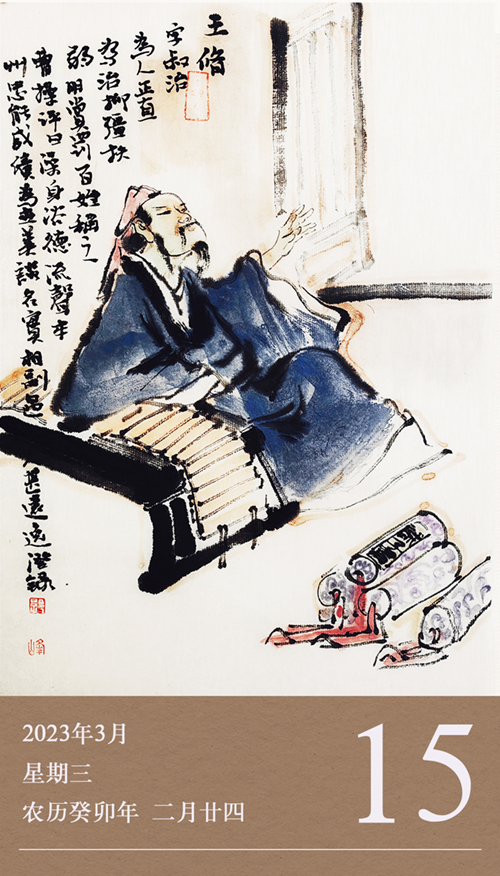 王脩
字叔治
為人正直
為治抑彊扶
弱明賞罰百姓稱之
曹操評曰澡身浴德流聲本
州忠能成績為世美談名實相副過人甚遠
2023年3月
星期三
农历癸卯年 二月廿四
15